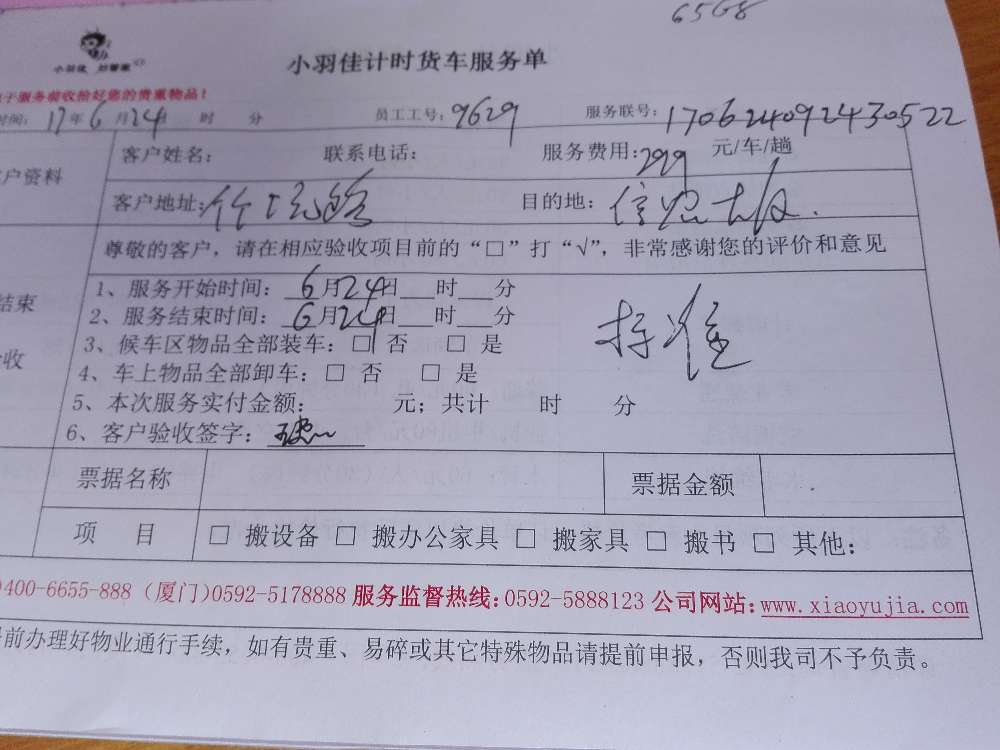 6568
小羽佳 好管家
小羽佳计时货车服务单
于服务前收拾好您的贵重物品！
时间：17年6月24 时 分 员工工号：9629 服务联号：1706240924430522
户资料
客户姓名： 联系电话： 服务费用：299 元/车/趟
客户地址： 目的地：信息大厦.
尊敬的客户，请在相应验收项目前的“□”打“√”，非常感谢您的评价和意见
结束
收
1、服务开始时间：6月24日 时 分
2、服务结束时间：6月24日 时 分
3、候车区物品全部装车：□ 否 □ 是
4、车上物品全部卸车：□ 否 □ 是
5、本次服务实付金额： 元；共计 时 分
6、客户验收签字：
标准
票据名称 票据金额
项 目 □ 搬设备 □ 搬办公家具 □ 搬家具 □ 搬书 □ 其他：
)400-6655-888（厦门)0592-5178888 服务监督热线：0592-5888123 公司网站：www.xiaoyujia.com
前办理好物业通行手续，如有贵重、易碎或其它特殊物品请提前申报，否则我司不予负责。